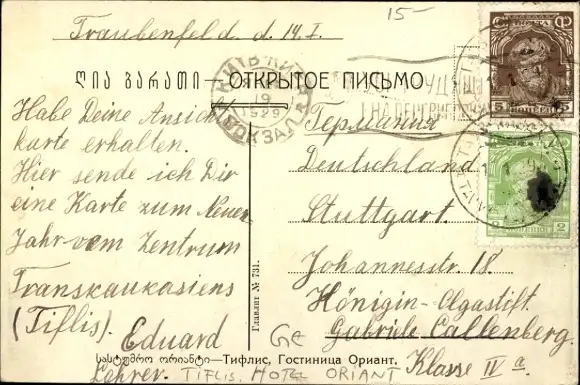 15-
Traubenfeld d. d 14. I.
ღია ბარათი — ОТКРЫТОЕ ПИСЬМО
Habe Deine Ansichts
karte erhalten.
Hier sende ich Dir
eine Karte zum Neuen
Jahr vom Zentrum
Transkaukasiens
(Tiflis). Eduard
Lehrer.
1929
ВОКЗАЛ
5 КОПЕЕК 5
Германия
Deutschland
Stuttgart.
Johannesstr. 18.
Königin-Olgastift
Gabriele Callenberg.
Klasse IV a
Главлит № 731.
GE
სასტუმრო ორიანტი—Тифлис, Гостиница Ориант.
TIFLIS. HOTEL ORIANT